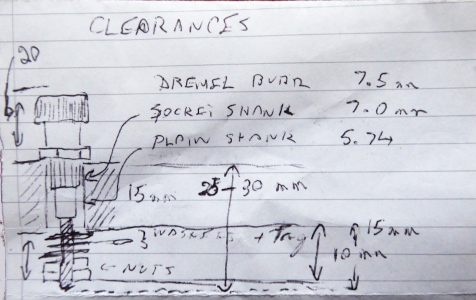 CLEARANCES
20
DREMEL BURR 7.5 mm
SOCKET SHANK 7.0 mm
PLAIN SHANK 5.74
15mm
25-30 mm
3 WASHERS + Tag
15mm
10mm
NUTS